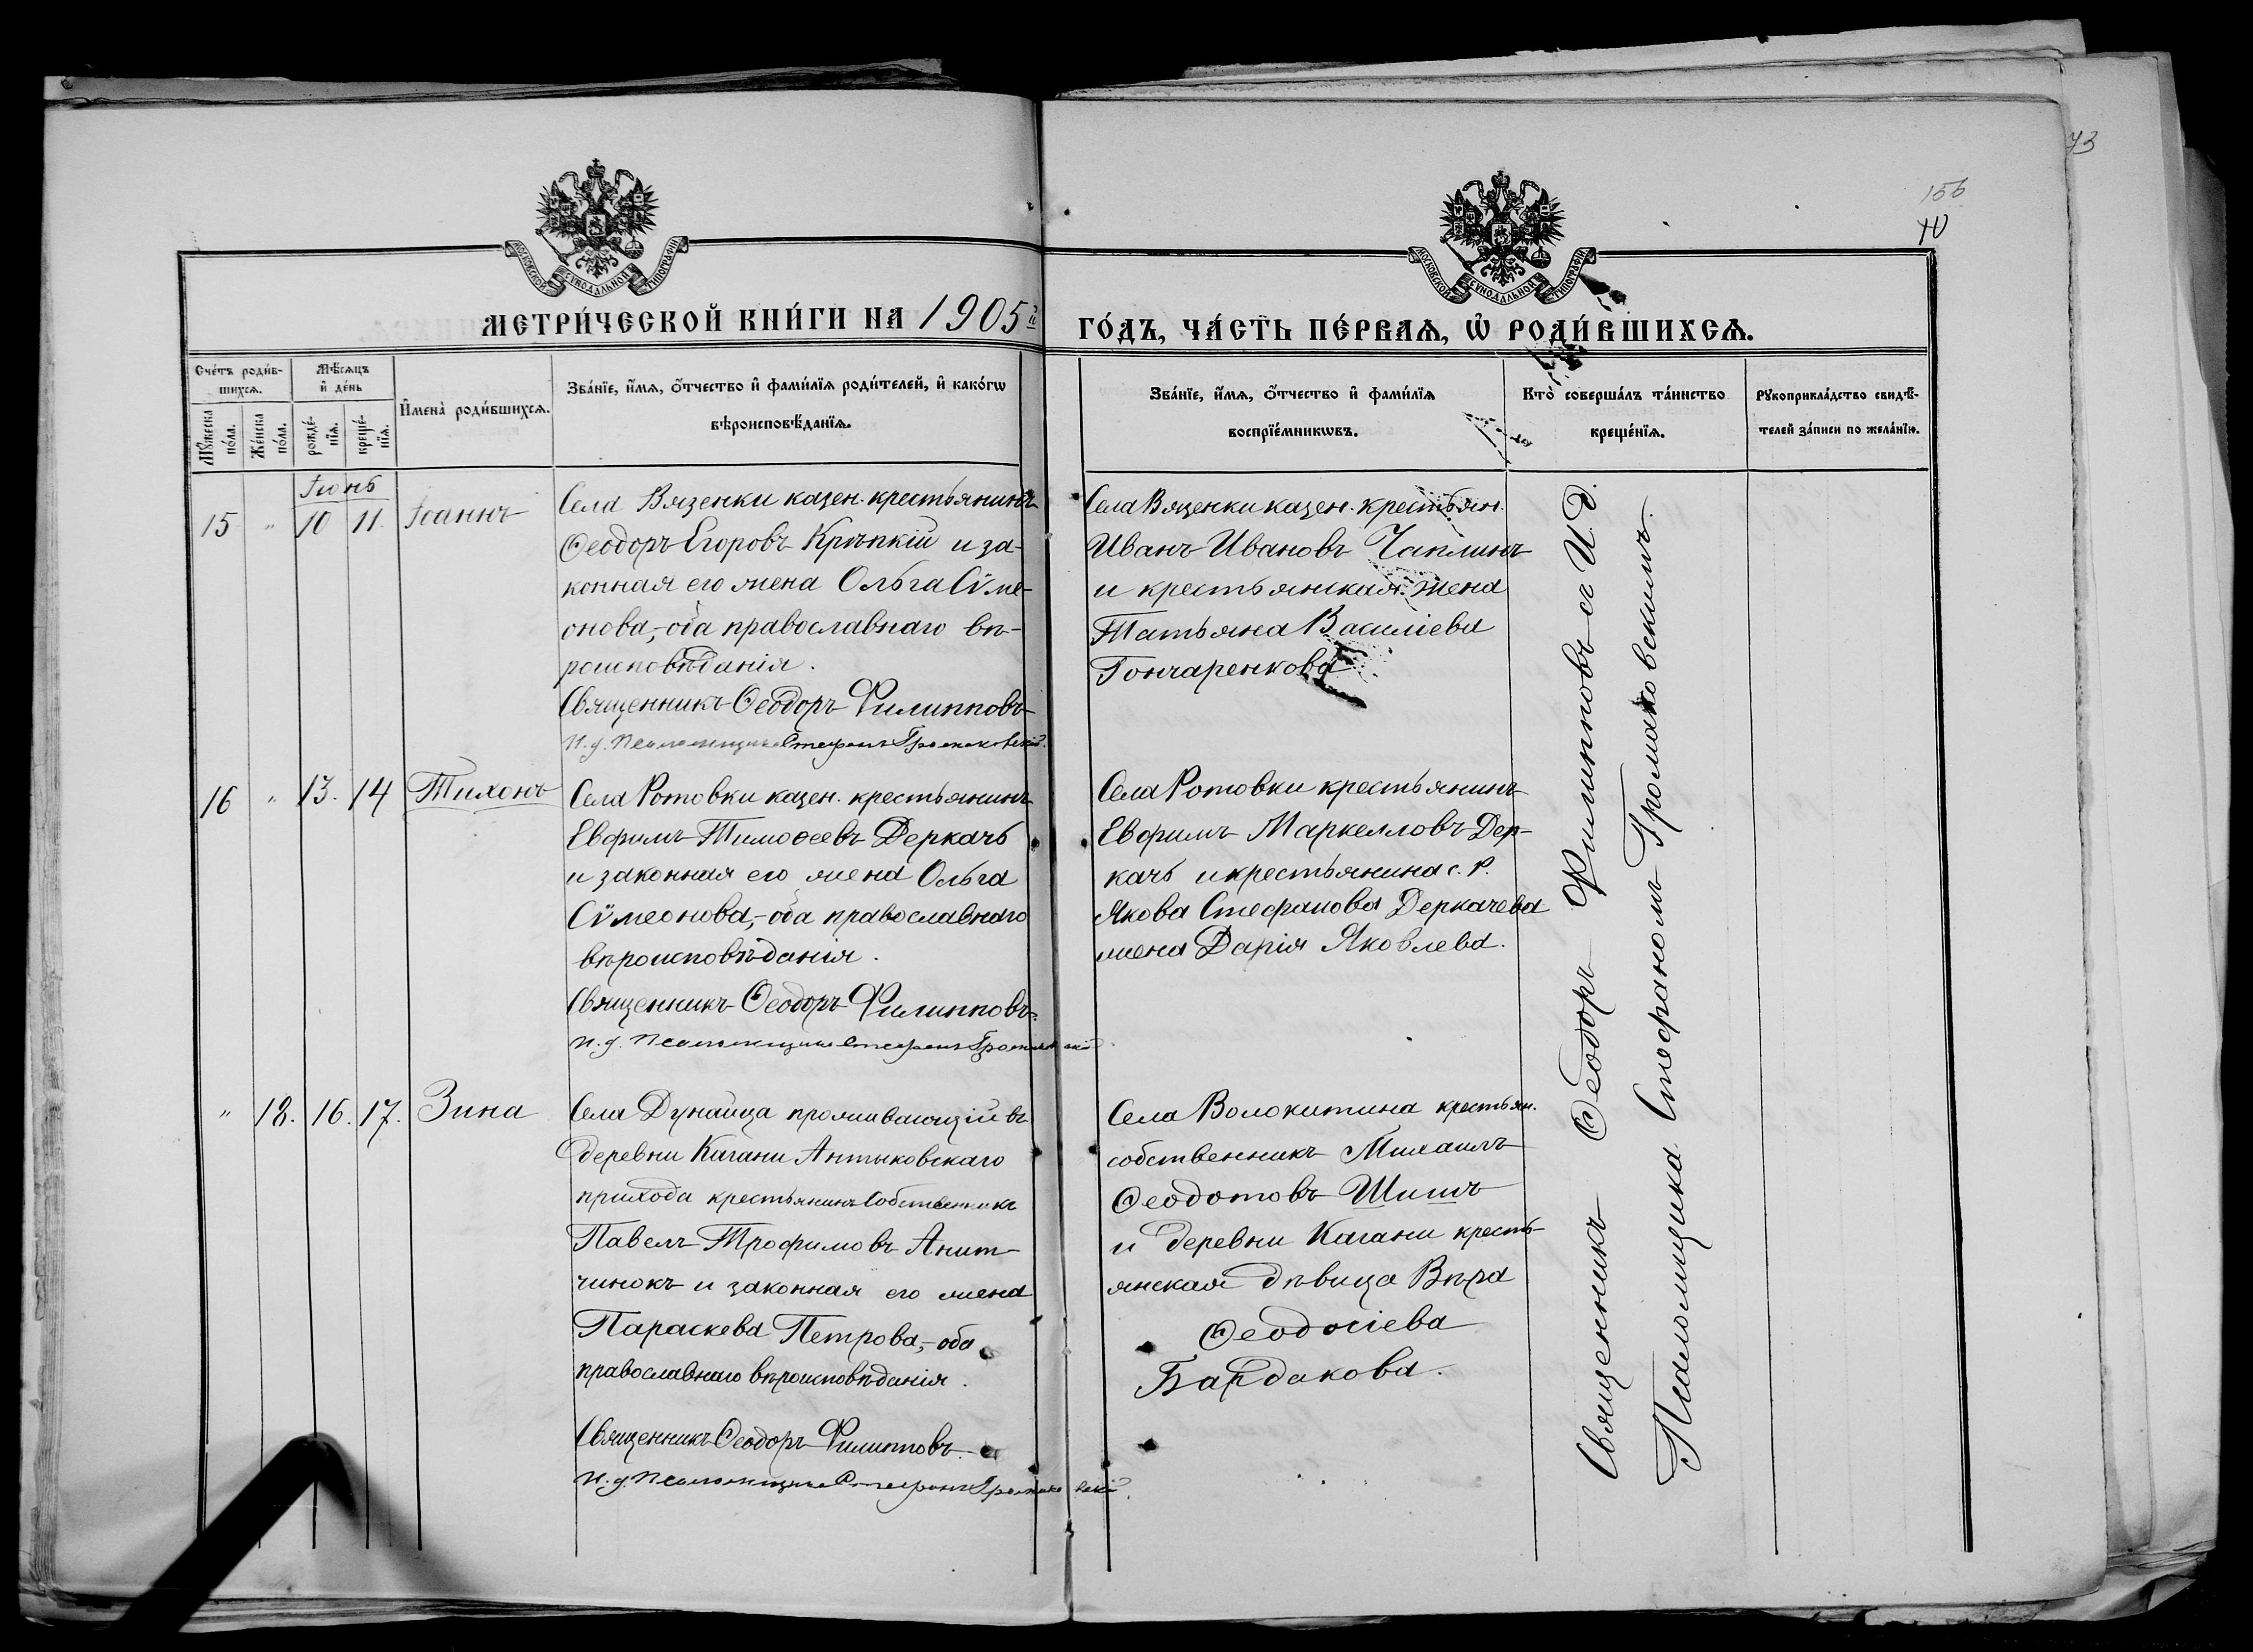 73
156
10
МОСКОВСКОЙ СУНОДАЛЬНОЙ ТИПОГРАФІИ
МОСКОВСКОЙ СУНОДАЛЬНОЙ ТИПОГРАФІИ
МЕТРИ́ЧЕСКОЙ КНИ́ГИ НА 1905й
ГО́ДЪ, ЧА́СТЬ ПЕ́РВАѦ, Ѡ҆ РОДИ́ВШИХСѦ.
Сче́тъ роди́в-
шихсѧ.
Мꙋ́жеска по́ла.
Же́нска по́ла.
Мѣ́сѧцъ
и҆ де́нь
рожде́-
нїѧ.
креще́-
нїѧ.
И҆мена̀ роди́вшихсѧ.
Зва́нїе, и҆́мѧ, ѻ҆́тчество и҆ фами́лїѧ роди́телей, и҆ како́гѡ
вѣроисповѣ́данїѧ.
Зва́нїе, и҆́мѧ, ѻ҆́тчество и҆ фами́лїѧ
воспрїе́мникѡвъ.
Кто̀ соверша́лъ та́инство
креще́нїѧ.
Рꙋкоприкла́дство свидѣ́-
телей за́писи по жела́нїю.
Іюнь
15 " 10 11. Іоаннъ
Села Вязенки казен. крестьянинъ
Ѳеодоръ Егоровъ Крѣпкій и за-
конная его жена Ольга Сѵме-
онова,- оба православнаго вѣ-
роисповѣданія.
Священникъ Ѳеодоръ Филипповъ
И. д. Псаломщика Стефанъ Громаковскій.
Села Вязенки казен. крестьян.
Иванъ Ивановъ Чаплинъ
и крестьянская жена
Татьяна Василіева
Гончаренкова
16 " 13. 14 Тихонъ
Села Ротовки казен. крестьянинъ
Евфимъ Тимоѳеевъ Деркачъ
и законная его жена Ольга
Сѵмеонова,- оба православнаго
вѣроисповѣданія.
Священникъ Ѳеодоръ Филипповъ
И. д. Псаломщика Стефанъ Громаковскій
Села Ротовки крестьянинъ
Евфимъ Маркелловъ Дер-
качъ и крестьянина с. Р.
Якова Стефанова Деркачева
жена Дарія Яковлева.
" 18. 16. 17. Зина
Села Дунайца проживающій въ
деревни Кагани Антыковскаго
прихода крестьянинъ собственникъ
Павелъ Трофимовъ Анит-
чинокъ и законная его жена
Параскева Петрова,- оба
православнаго вѣроисповѣданія.
Священникъ Ѳеодоръ Филипповъ
И. д. Псаломщика Стефанъ Громаковскій.
Села Волокитина крестьян.
собственникъ Михаилъ
Ѳеодотовъ Шишъ
и деревни Кагани кресть-
янская дѣвица Вѣра
Ѳеодосіева
Бардакова.
Священникъ Ѳеодоръ Филипповъ съ И. Д.
Псаломщика Стефаномъ Громаковскимъ.